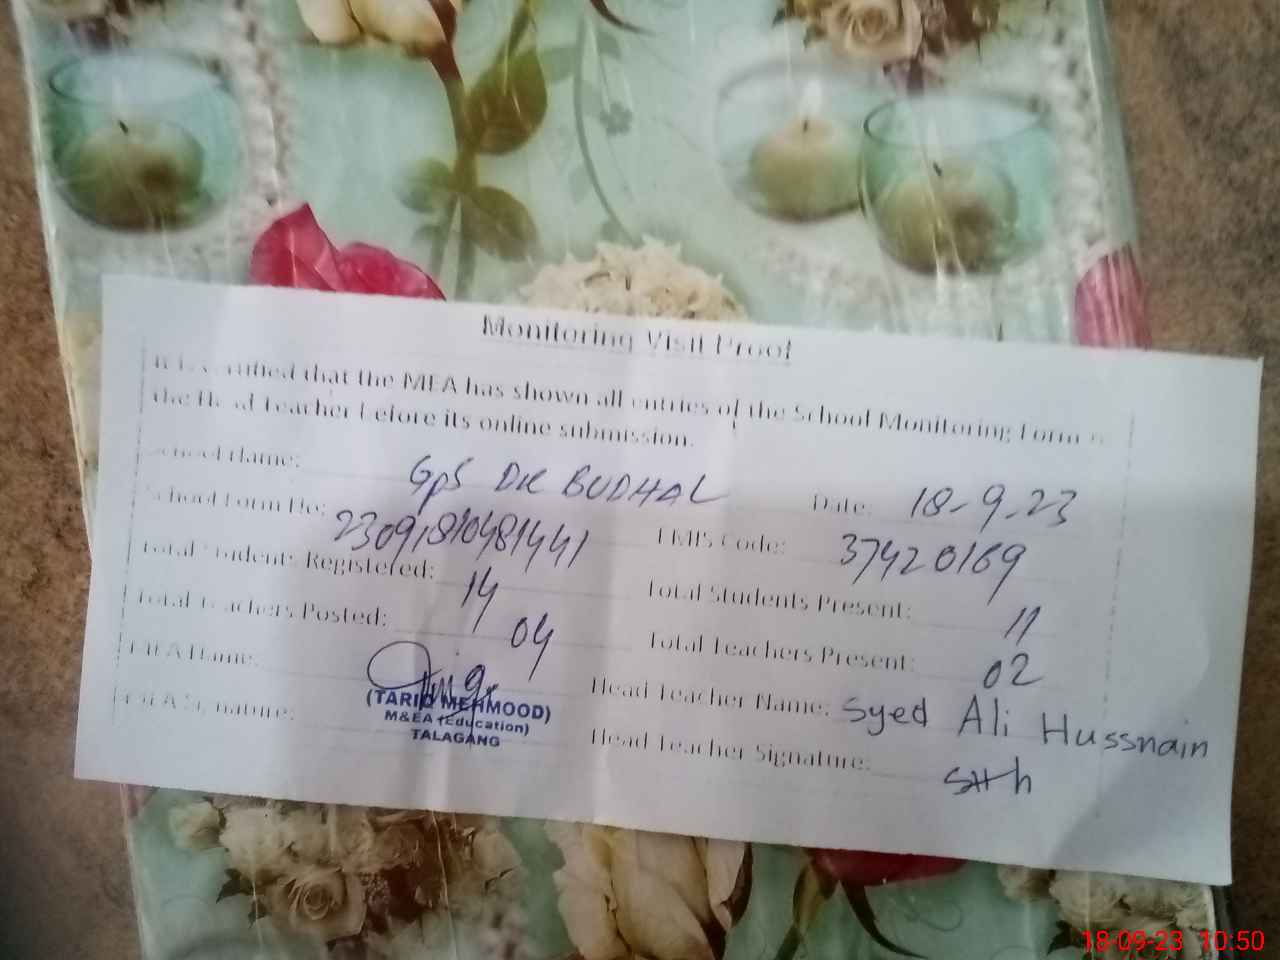 Monitoring Visit Proof
It is certified that the MEA has shown all entries of the School Monitoring Form to
the Head Teacher before its online submission.
School Name: GPS DK BUDHAL Date: 18-9-23
School Form No: 23091810481441 EMIS Code: 37420169
Total Students Registered: 14 Total Students Present: 11
Total Teachers Posted: 04 Total Teachers Present: 02
MEA Name: Head Teacher Name: Syed Ali Hussnain
MEA Signature: Head Teacher Signature:
(TARIQ MEHMOOD)
M&EA (Education)
TALAGANG
18-09-23 10:50